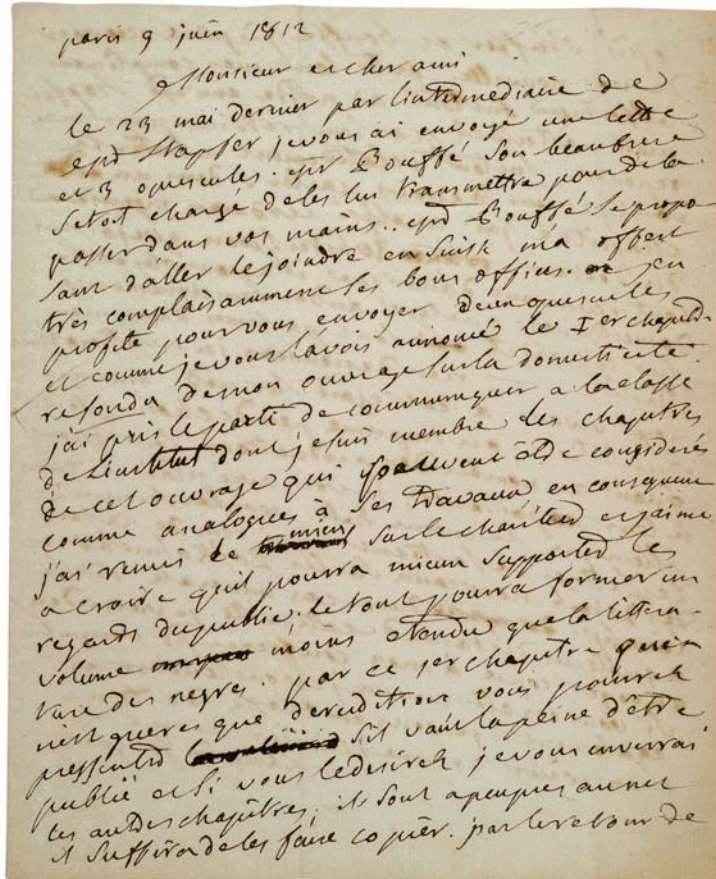 paris 9 juin 1812
Monsieur et cher ami
le 23 mai dernier par l'intermediaire de
Mr Stapfer je vous ai envoyé une lettre
et 3 opuscules. Mr Bouffé son beaufrere
s'etoit chargé de les lui transmettre pour de la
passer dans vos mains.. Mr Bouffé se propo
sant d'aller le joindre en Suisse m'a offert
très complaisamment ses bons offices. j'en
profite pour vous envoyer deux opuscules
et comme je vous l'avois annoncé le Ier chapitre
refondu de mon ouvrage sur la domesticité.
j'ai pris le parti de communiquer a la classe
de l'institut dont je suis membre les chapitres
de cet ouvrage qui peuvent etre considerés
comme analogues à ses travaux en consequence
j'ai remis le mien sur le chantier et j'aime
a croire qu'il pourra mieux supporter les
regards du public. le tout pourra former un
volume moins etendu que la littera-
ture des negres. par ce 1er chapitre qui
n'est gueres que d'erudition vous pourrez
pressentir s'il vaut la peine d'être
publié et si vous le desirez je vous enverrai
les autres chapitres. ils sont a peu près au net
il suffira de les faire copier. par le retour de